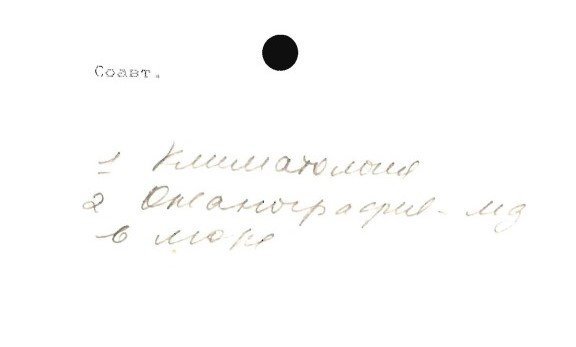 Соавт.
1 Климатология
2 Океанография - мд
в море